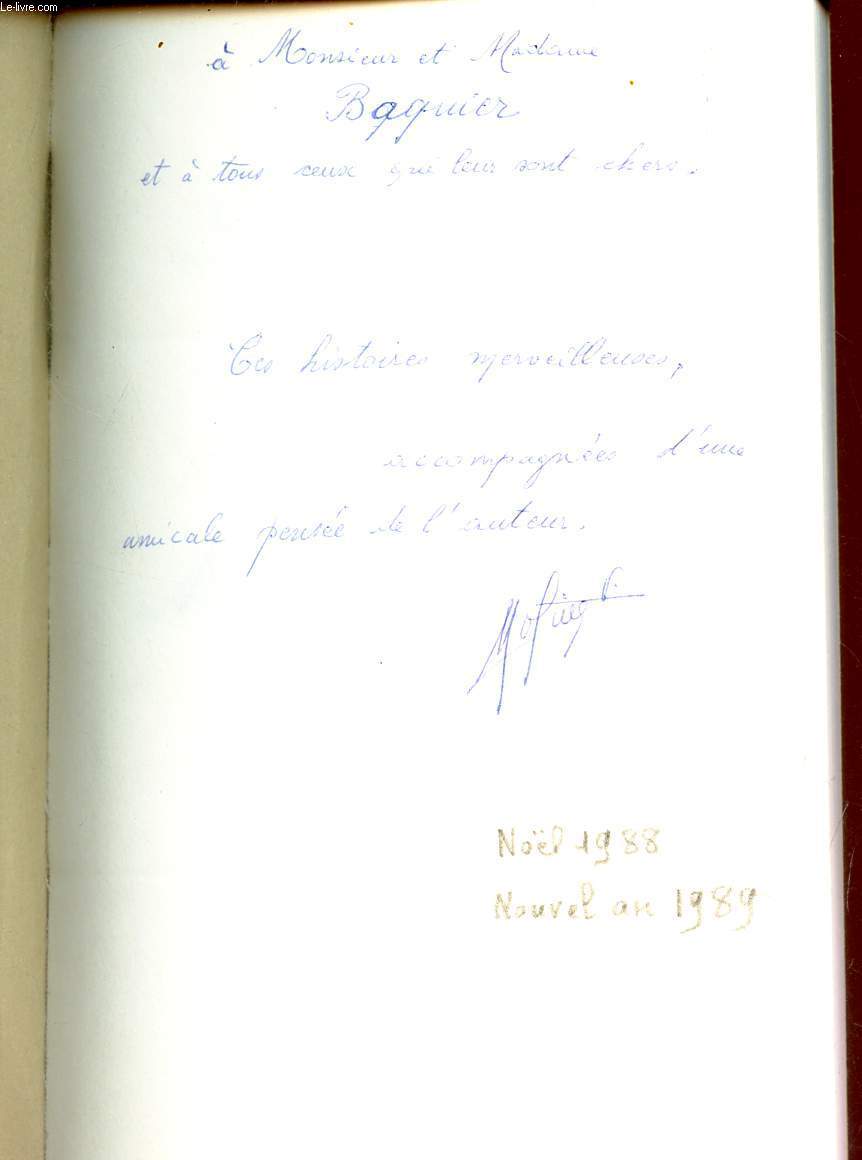 Le-livre.com
à Monsieur et Madame
et à tous ceux qui leur sont chers.
Ces histoires merveilleuses,
accompagnées d'une
amicale pensée de l'auteur.
Noël 1988
Nouvel an 1989